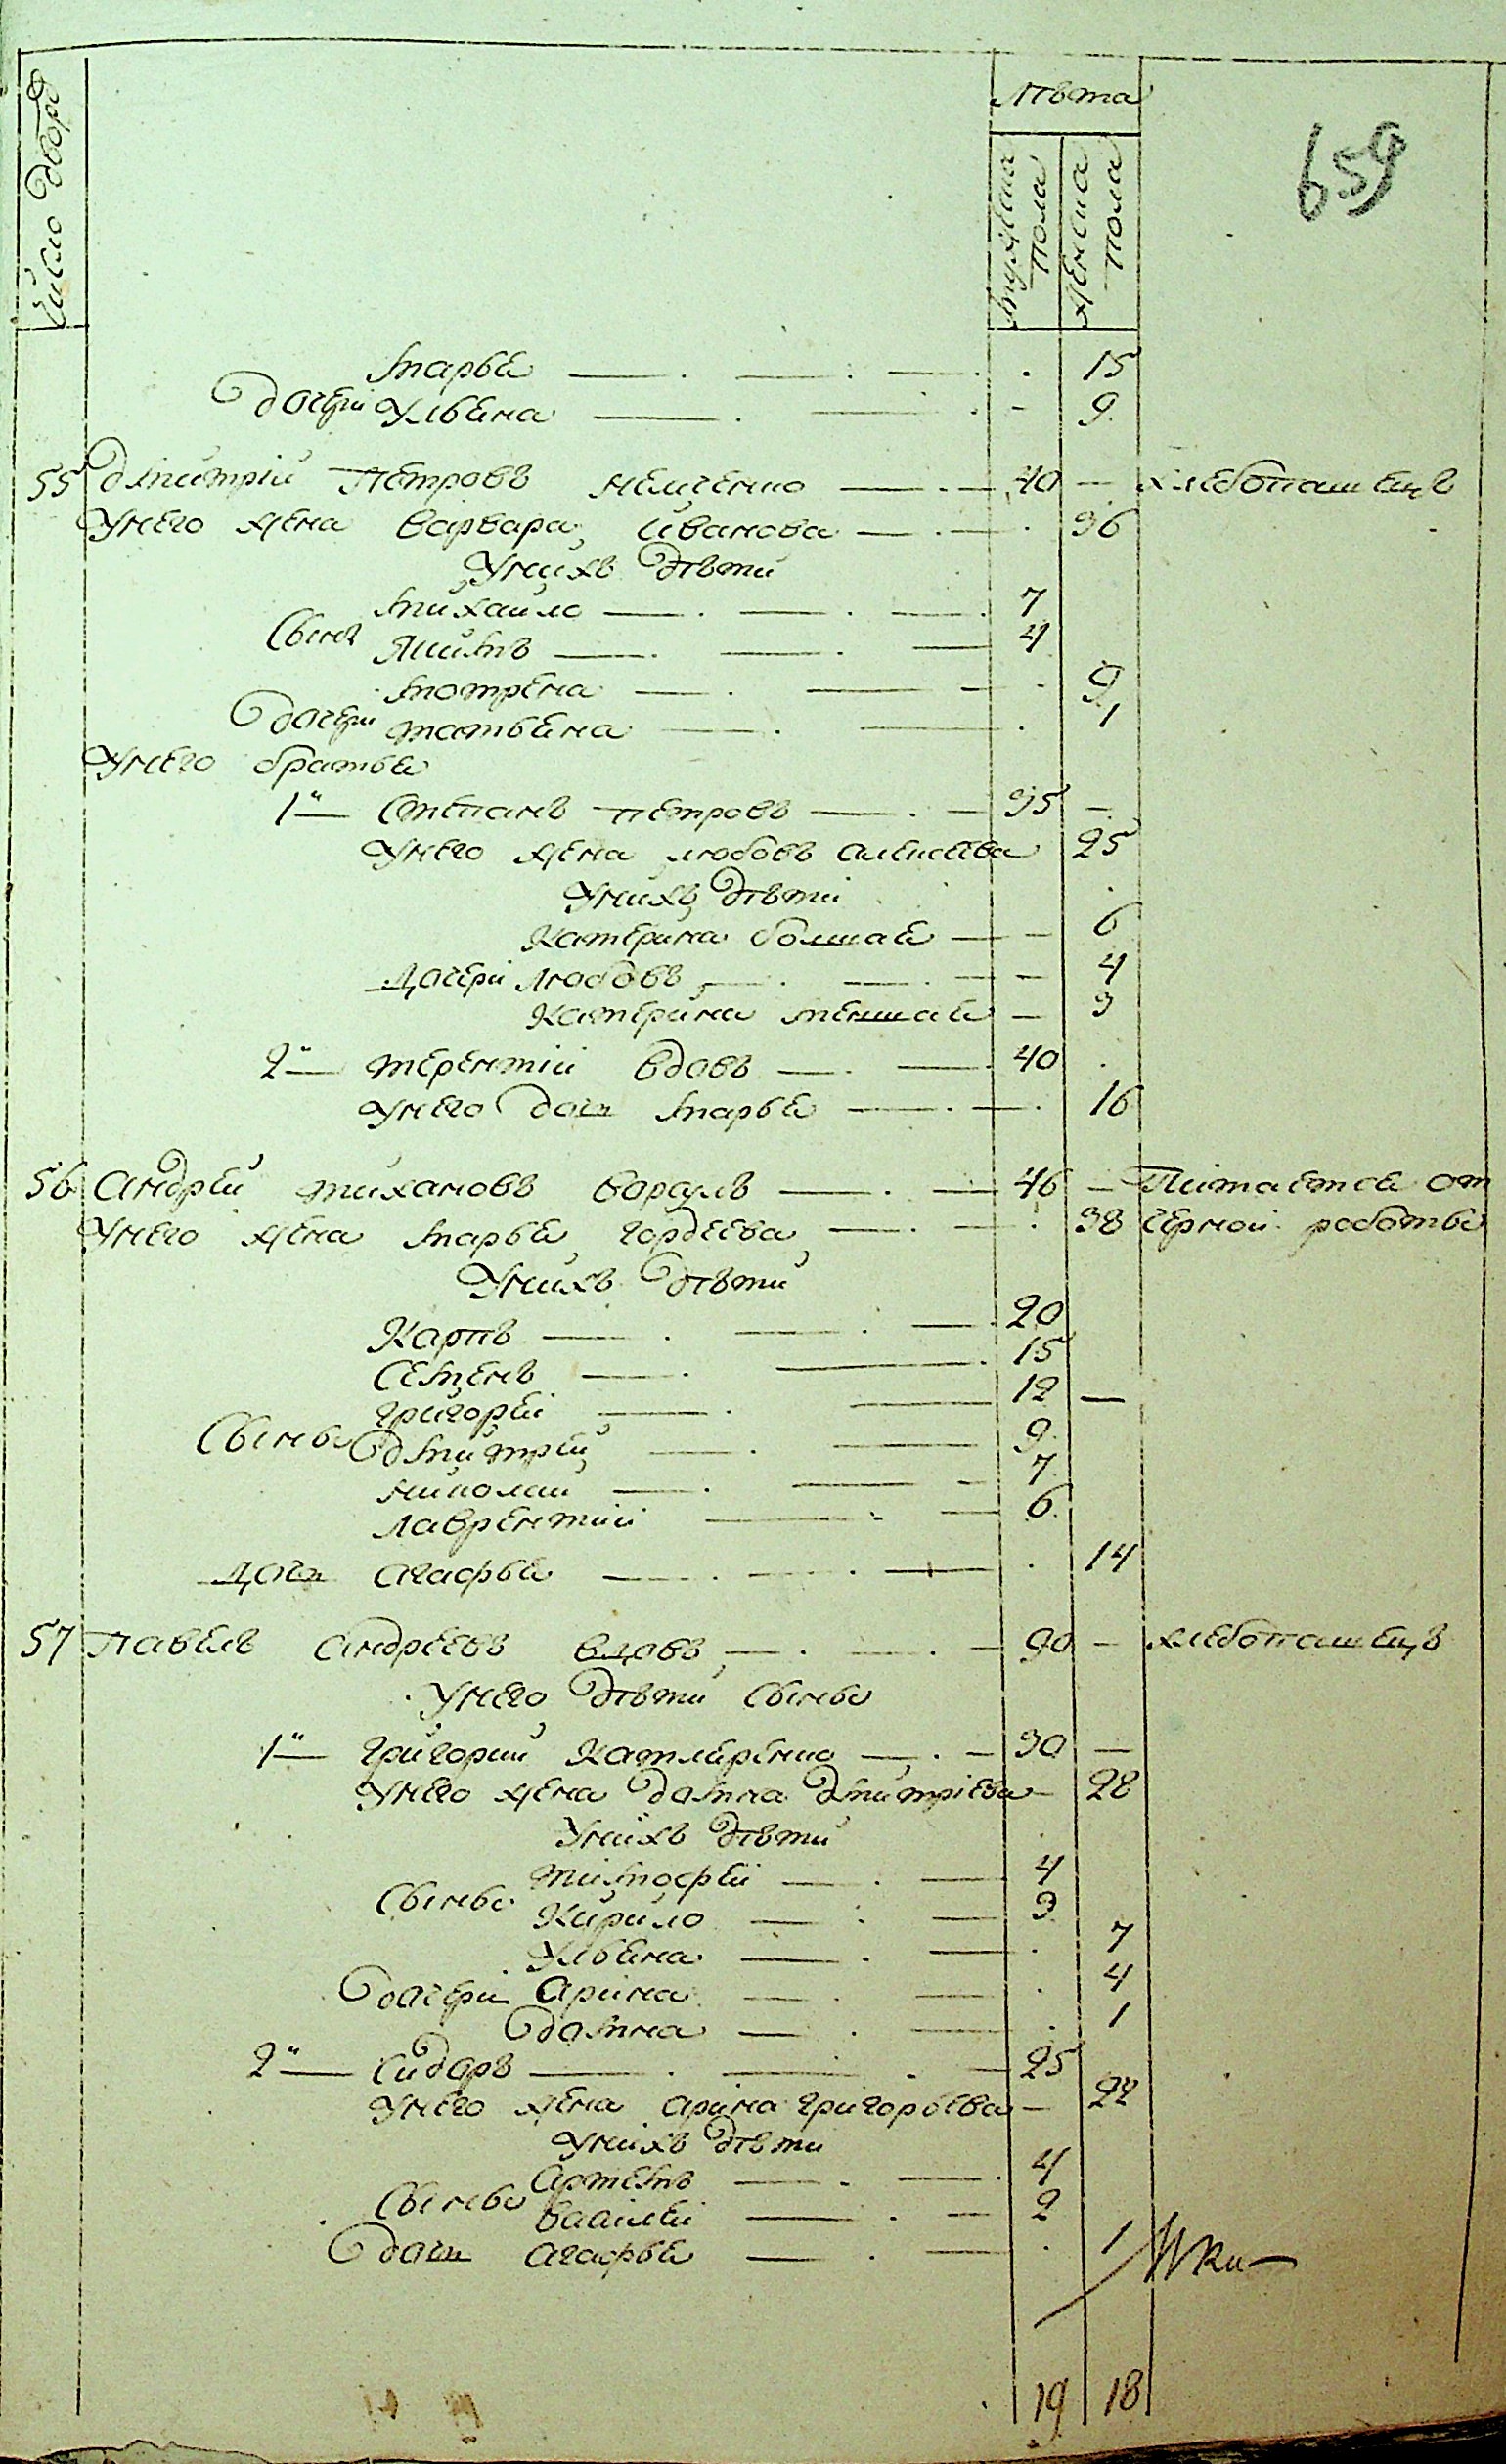 Число дворо
Лѣта
мужска пола
женска пола
659
Марья — . 15
дочери Ульяна — 9
55 Дмитрій Петровъ — 40 — хлебопашецъ
Унего жена варвара иванова — . 36
Унихъ дѣти
михаило — 7
Сынъ Якимъ — 4
мотрена — . 9
дочери татьяна — . 1
Унего братья
1й Степанъ петровъ — 35 —
Унего жена любовъ алексеева 25
Унихъ дѣти
Катерина болшая — 6
дочери любовъ — 4
Катерина меншая — 3
2й терентій вдовъ — 40 .
Унего дочь марья — . 16
56 андрей тихановъ — 46 — Питается от
Унего жена марья гордеева — . 38 черной работы
Унихъ дѣти
Карпъ — 20
Семенъ — 15
григорей — 12 —
Сыновья дмитрей — 9
николай — 7
лаврентий — 6
дочь агафья — . 14
57 павелъ андреевъ вдовъ — 90 — хлебопашецъ
Унего дѣти Сыновья
1й григорий — 30 —
Унего жена домна дмитріева — 28
Унихъ дѣти
тимофей — 4
Сыновья Кирило — 3
Ульяна — . 7
дочери арина — . 4
домна — . 1
2й Сидоръ — 25
Унего жена арина григорьева — 22
Унихъ дѣти
артемъ — 4
Сыновья василей — 2
дочь агафья — . 1
19 18